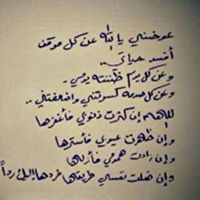 عوضني يا الله عن كل موقف
أفسد حياتي..
وعن كل يوم ظننته يومي..
وعن كل صدمة كسرتني واضعفتني..
اللهم إن كثرت ذنوبي فأغفرها
وإن ظهرت عيوبي فأسترها
وإن زادت همومي فأزلها
وإن ضلت نفسي طريقها فردها إليك رداً